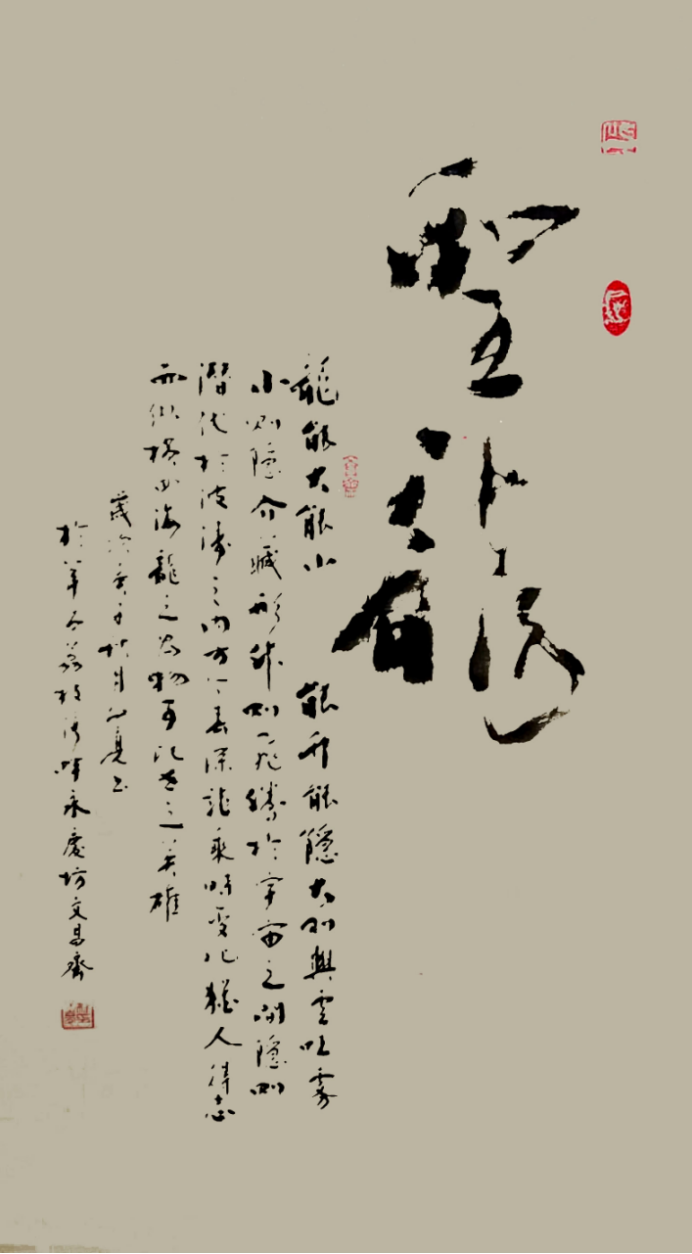 聖龍
龍能大能小能升能隱大則興雲吐霧
小則隱介藏形升則飛騰於宇宙之間隱則
潛伏於波濤之內方今春深龍乘時變化猶人得志
而縱橫四海龍之為物可比世之英雄
歲次庚子秋月書
於羊城荔枝灣畔永慶坊文昌齋